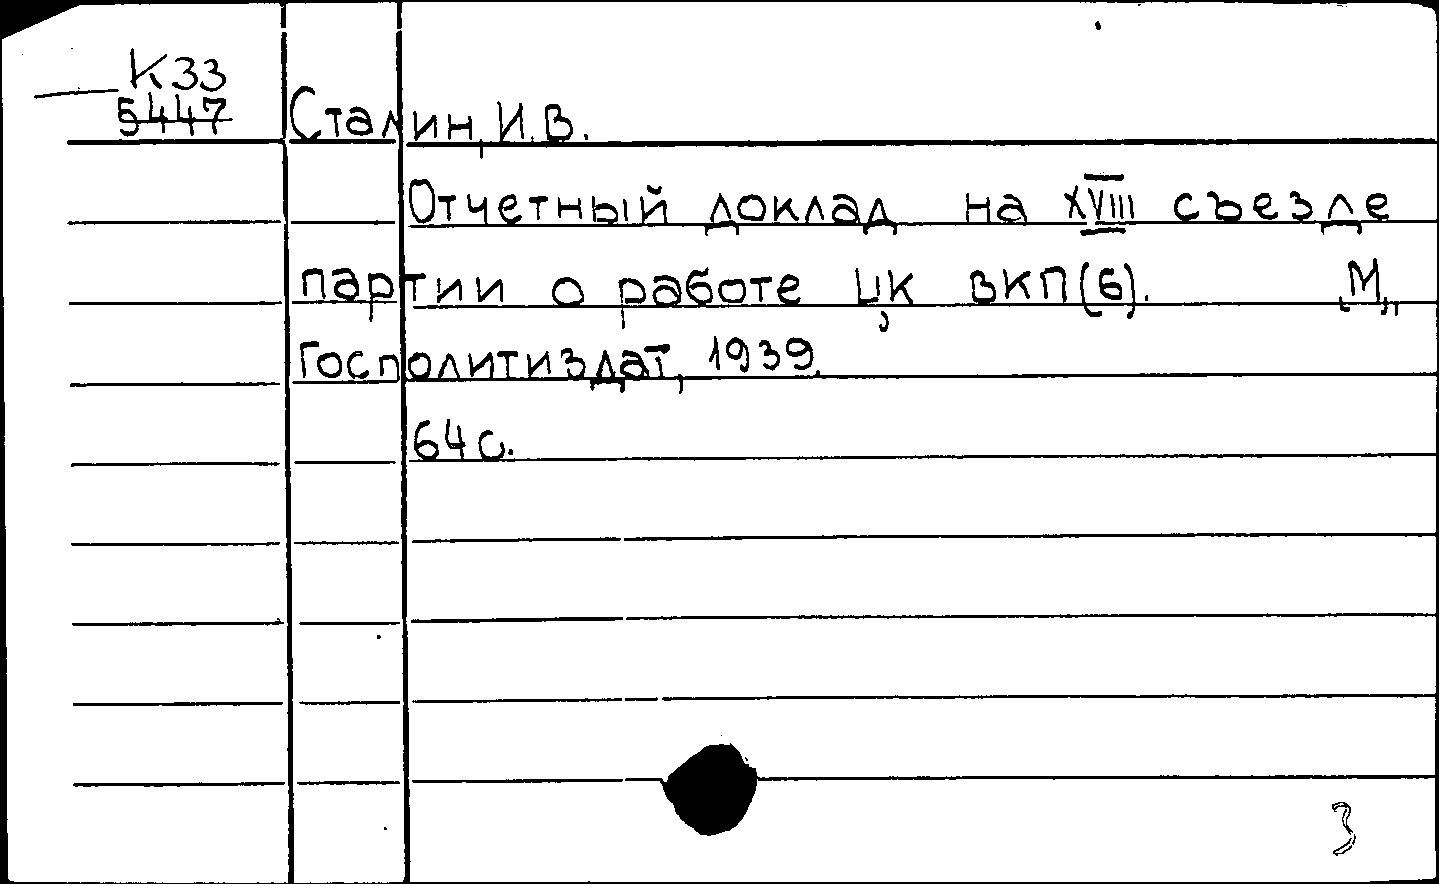 К33
5447
Сталин, И.В.
Отчетный доклад на XVIII съезде
партии о работе ЦК ВКП(б). М.,
Госполитиздат, 1939.
64 с.
3